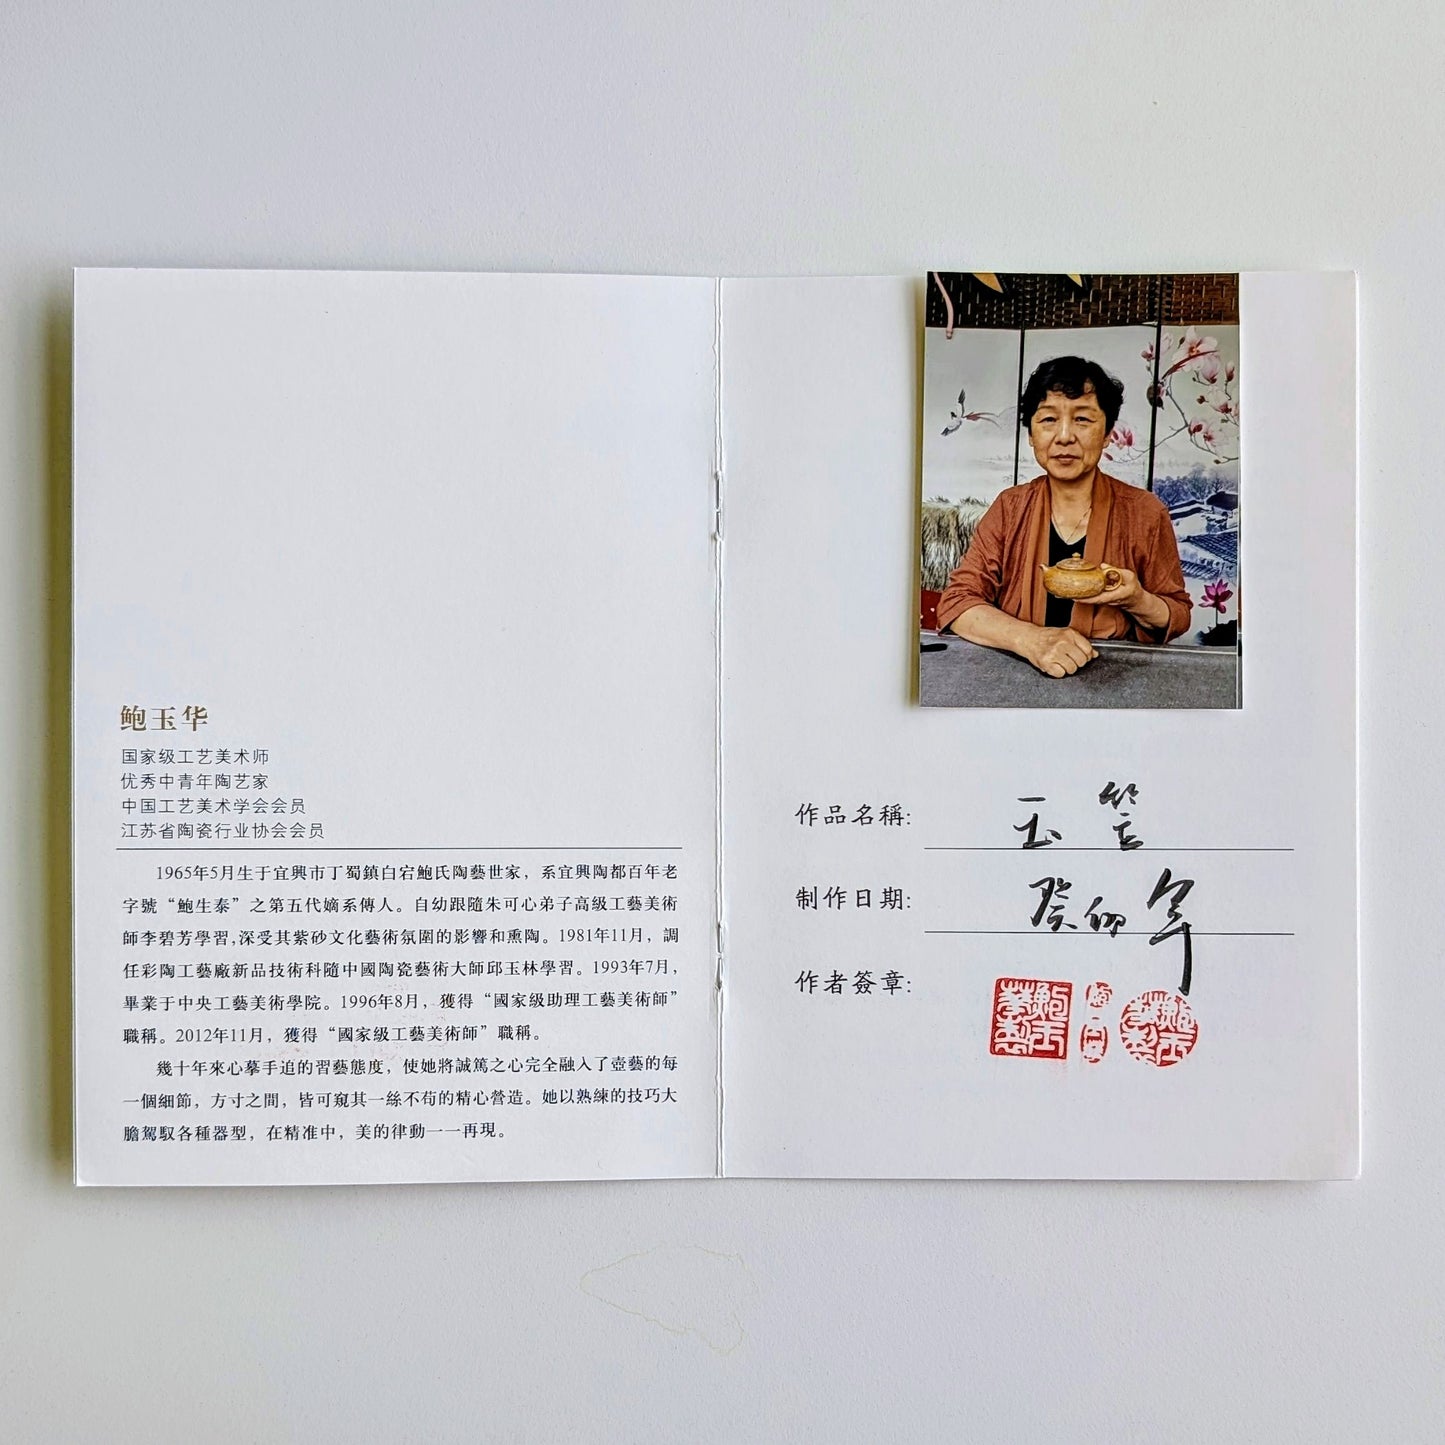 鲍玉华
国家级工艺美术师
优秀中青年陶艺家
中国工艺美术学会会员
江苏省陶瓷行业协会会员
1965年5月生于宜興市丁蜀鎮白宕鲍氏陶藝世家，系宜興陶都百年老
字號“鲍生泰”之第五代嫡系傳人。自幼跟隨朱可心弟子高級工藝美術
師李碧芳學習,深受其紫砂文化藝術氛圍的影響和熏陶。1981年11月，調
任彩陶工藝廠新品技術科隨中國陶瓷藝術大師邱玉林學習。1993年7月，
畢業于中央工藝美術學院。1996年8月，獲得“國家級助理工藝美術師”
職稱。2012年11月，獲得“國家級工藝美術師”職稱。
幾十年來心摹手追的習藝態度，使她將誠篤之心完全融入了壺藝的每
一個細節，方寸之間，皆可窺其一絲不苟的精心營造。她以熟練的技巧大
膽駕馭各種器型，在精准中，美的律動一一再現。
作品名稱: 玉笠
制作日期: 癸卯年
作者簽章:
鲍玉華製
鲍玉華
鲍玉華製